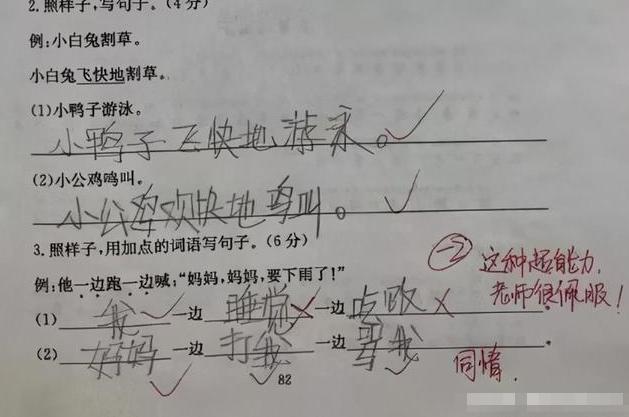 2.照样子,写句子。(4分)
例:小白兔割草。
小白兔飞快地割草。
(1)小鸭子游泳。
小鸭子飞快地游泳。
(2)小公鸡鸣叫。
小公鸡欢快地鸣叫。
3.照样子,用加点的词语写句子。(6分)
例:他一边跑一边喊:“妈妈,妈妈,要下雨了!”
(1)我一边睡觉一边吃饭。
(2)妈妈一边打我一边骂我。
-2
这种超能力,
老师很佩服!
同情.
82